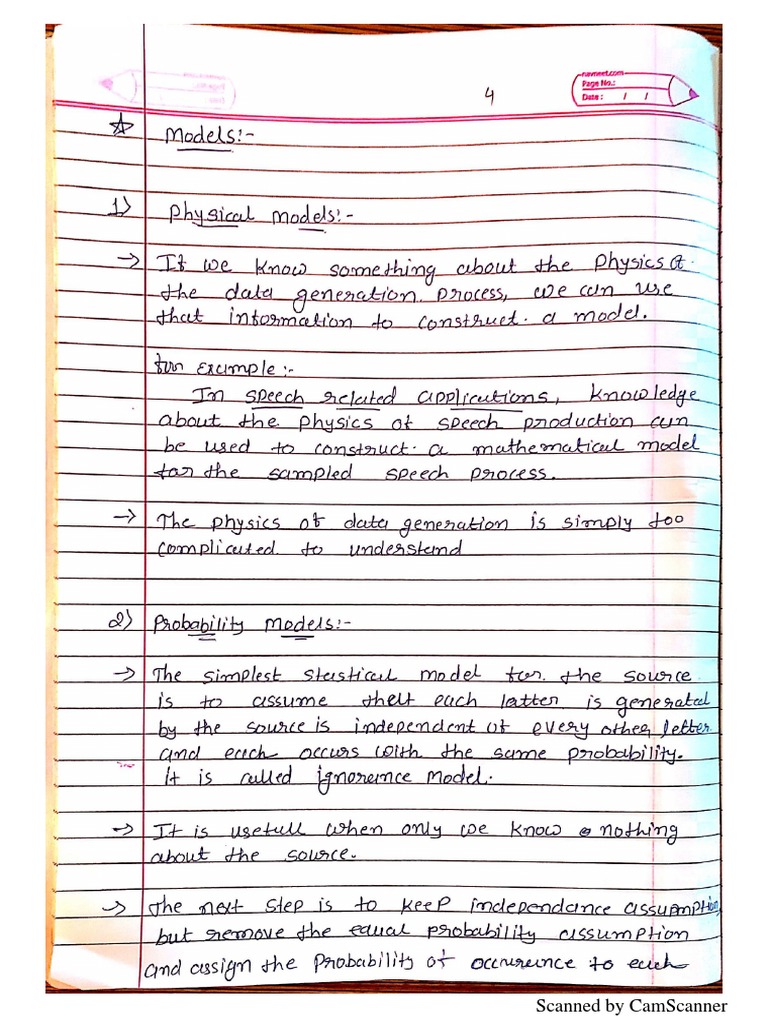 4
navneet.com
Page No.:
Date : / /
☆ Models:-
1) Physical Models:-
→ If we know something about the Physics of
the data generation process, we can use
that information to construct a model.
for example:-
In speech related applications, knowledge
about the physics of speech production can
be used to construct a mathematical model
for the sampled speech process.
→ The physics of data generation is simply too
complicated to understand
2) Probability Models:-
→ The simplest stastical model for the source
is to assume that each latter is generated
by the source is independent of every other letter
and each occurs with the same probability.
It is called ignorance model.
→ It is usefull when only we know nothing
about the source.
→ The next step is to keep independance assumption,
but remove the equal probability assumption
and assign the Probability of occurance to each
Scanned by CamScanner